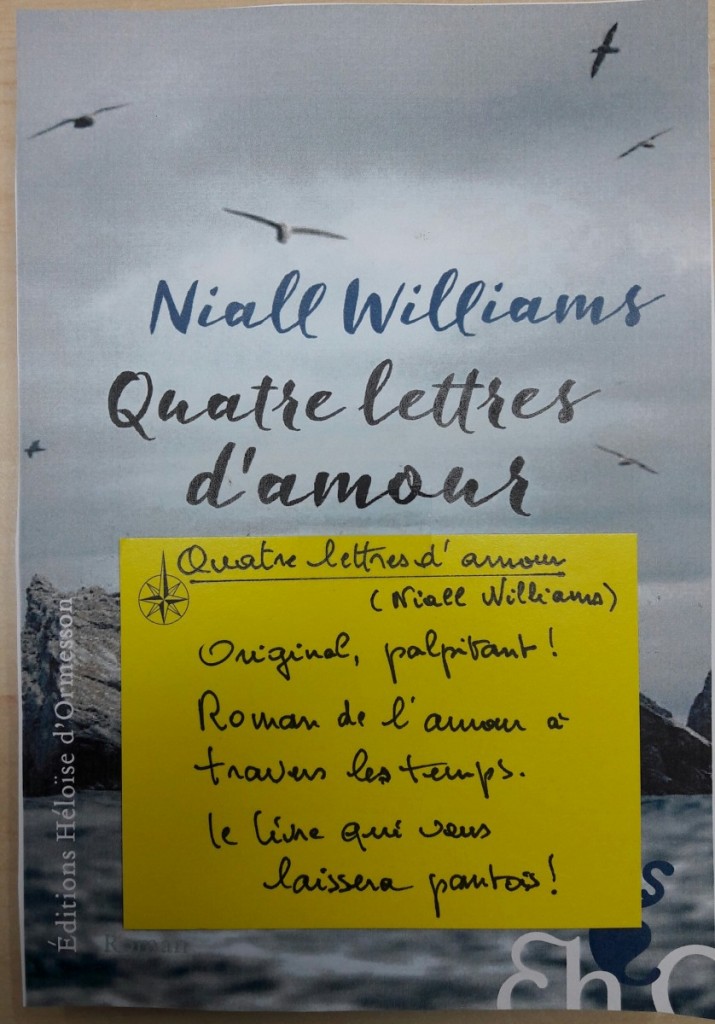 Niall Williams
Quatre lettres
d'amour
Quatre lettres d'amour
(Niall Williams)
Original, palpitant !
Roman de l'amour à
travers les temps.
le livre qui vous
laissera pantois !
Éditions Héloïse d'Ormesson
Roman